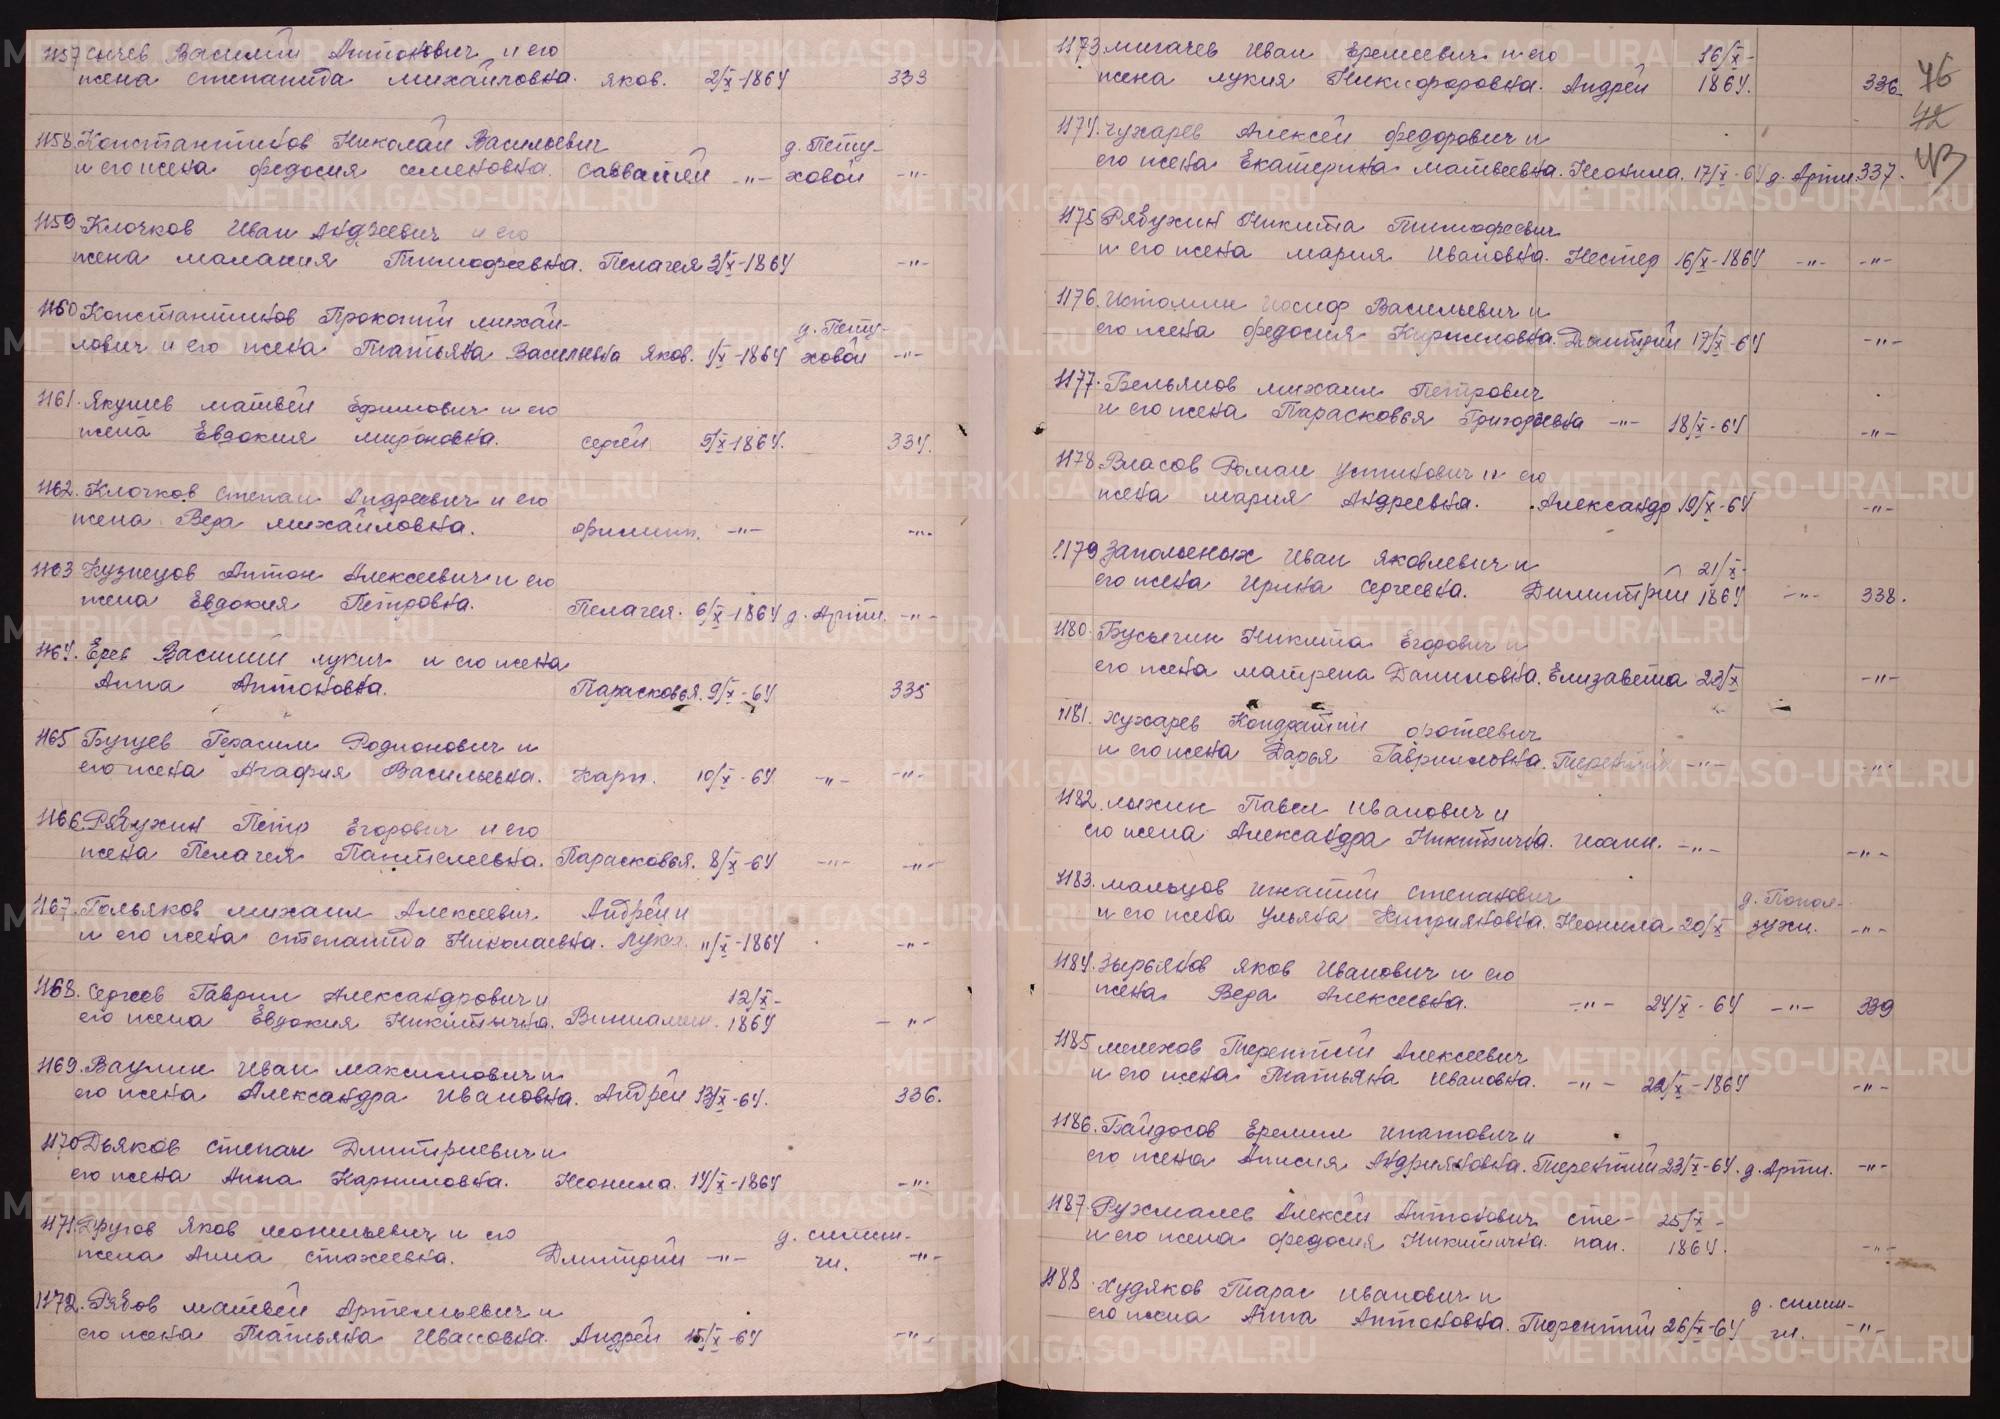 1157 Сычев Василий Антонович и его
жена Степанида Михайловна. Яков. 2/X-1864 333
1158. Константинов Николай Васильевич д. Пету-
и его жена Федосия Семеновна. Савватей -"- ховой -"-
1159 Клочков Иван Андреевич и его
жена Малания Тимофеевна. Пелагея 3/X-1864 -"-
1160 Константинов Прокопий Михай- д. Пету-
лович и его жена Татьяна Васильевна Яков. 1/X-1864 ховой -"-
1161. Якушев Матвей Ефимович и его
жена Евдокия Мироновна. Сергей 5/X-1864. 334.
1162. Клочков Степан Андреевич и его
жена Вера Михайловна. Филипп. -"- -"-
1163 Кузнецов Антон Алексеевич и его
жена Евдокия Петровна. Пелагея. 6/X-1864 д. Арти. -"-
1164. Ерев Василий Лукич и его жена
Анна Антоновна. Парасковья. 9/X-64 335
1165 Бугуев Герасим Родионович и
его жена Агафия Васильевна. Карп. 10/X-64 -"- -"-
1166. Рябухин Петр Егорович и его
жена Пелагея Пантелеевна. Парасковья. 8/X-64 -"- -"-
1167. Польяков Михаил Алексеевич Андрей и
и его жена Степанида Николаевна. Лука. 11/X-1864 -"-
1168. Сергеев Гаврил Александрович и 12/X-
его жена Евдокия Никитична. Виниамин. 1864 -"-
1169. Ваулин Иван Максимович и
его жена Александра Ивановна. Андрей 13/X-64. 336.
1170 Дьяков Степан Дмитриевич и
его жена Анна Карниловна. Неонила. 14/X-1864 -"-
1171. Другов Яков Леонтьевич и его д. Симин-
жена Анна Стахеевна. Дмитрий -"- чи. -"-
1172. Рябов Матвей Артемьевич и
его жена Татьяна Ивановна. Андрей 15/X-64 -"-
1173 Мигачев Иван Еремеевич и его 16/X-
жена Лукия Никифоровна. Андрей 1864. 336.
46
42
43
1174. Чухарев Алексей Федорович и
его жена Екатерина Матвеевна. Неонила. 17/X-64 д. Арти 337.
1175 Рябухин Никита Тимофеевич
и его жена Мария Ивановна. Нестер 16/X-1864 -"- -"-
1176. Истомин Иосиф Васильевич и
его жена Федосия Кириловна. Дмитрий 17/X-64 -"-
1177. Бельянов Михаил Петрович
и его жена Парасковья Григорьевна -"- 18/X-64 -"-
1178 Власов Роман Устинович и его
жена Мария Андреевна. Александр 19/X-64 -"-
1179 Запольских Иван Яковлевич и 21/X-
его жена Ирина Сергеевна. Димитрий 1864 -"- 338.
1180. Бусыгин Никита Егорович и
его жена Матрена Даниловна. Елизавета 23/X -"-
1181. Хухарев Кондратий Фотеевич
и его жена Дарья Гавриловна. Терентий -"- -"-
1182. Лыжин Павел Иванович и
его жена Александра Никитична. Иоанн. -"- -"-
1183. Мальцов Игнатий Степанович д. Попол-
и его жена Ульяна Киприяновна. Неонила 20/X зухи. -"-
1184. Зырьянов Яков Иванович и его
жена Вера Алексеевна. -"- 24/X-64 -"- 339
1185 Мелехов Терентий Алексеевич
и его жена Татьяна Ивановна. -"- 22/X-1864 -"-
1186. Байдосов Еремил Ипатович и
его жена Анисия Андрияновна. Терентий 23/X-64. д. Арти. -"-
1187. Рухмалев Алексей Антонович Сте- 25/X-
и его жена Федосия Никитична. пан. 1864. -"-
1188 Худяков Тарас Иванович и д. Симин-
его жена Анна Антоновна. Терентий 26/X-64 чи. -"-
METRIKI.GASO-URAL.RU